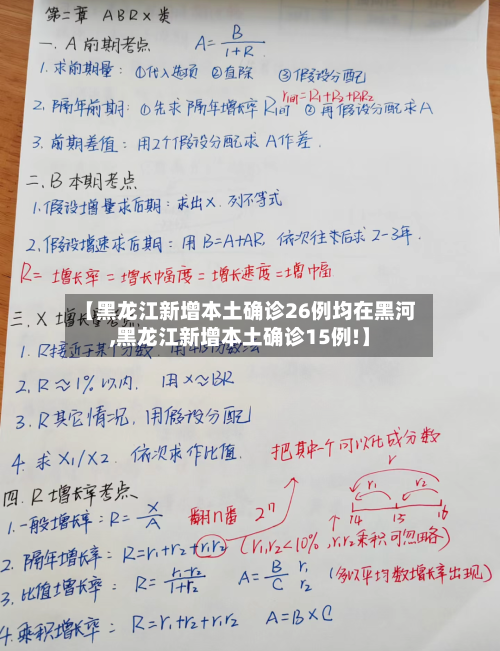 第二章 ABRX类
一. A 前期考点 A=B/1+R
1.求前期量: ①代入选项 ②直除 ③假设分配
r间=R1+R2+R1R2
2.隔年前期: ①先求隔年增长率R间 ②再假设分配求A
3.前期差值: 用2个假设分配求A作差.
二.B 本期考点
1.假设增量求后期: 求出X.列不等式
2.假设增速求后期: 用B=A+AR,依次往来后求2-3年.
R= 增长率=增长幅度=增长速度=增幅
【黑龙江新增本土确诊26例均在黑河
,黑龙江新增本土确诊15例!】
三.X 增长
1. R接近于某个分数.用
2. R≈1%以内. 用X≈BR
3. R其它情况,用假设分配
4. 求X1/X2. 依次求作比值.
把其中一个可以化成分数
四. R增长率考点
r
r1 r2
14 15 16
1.一般增长率: R=X/A
翻n番 2ⁿ
2.隔年增长率: R=r1+r2+r1r2 (r1,r2<10%,r1r2乘积可忽略)
3.比值增长率: R=r1-r2/1+r2 A=B/C r1 r2 (多以平均数增长率出现)
4.乘积增长率: R=r1+r2+r1r2 A=B×C